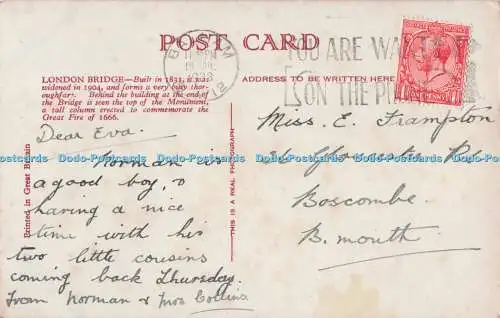 POST CARD
LONDON BRIDGE—Built in 1831, it was
widened in 1904, and forms a very busy thor-
oughfare. Behind the building at the end of
the Bridge is seen the top of the Monument,
a tall column erected to commemorate the
Great Fire of 1666.
ADDRESS TO BE WRITTEN HERE
YOU ARE WANTED
ON THE
1933
12
Dear Eva.
Norman is
a good boy, &
having a nice
time with his
two little cousins
coming back Thursday.
From Norman & Mrs Collins
Miss. E. Frampton
36
Rd
Boscombe.
B. mouth.
Printed in Great Britain
THIS IS A REAL PHOTOGRAPH
Dodo-Postcards Dodo-Postcards Dodo-Postcards Dodo-Postcards Dodo-Postcards Dodo-Postcards